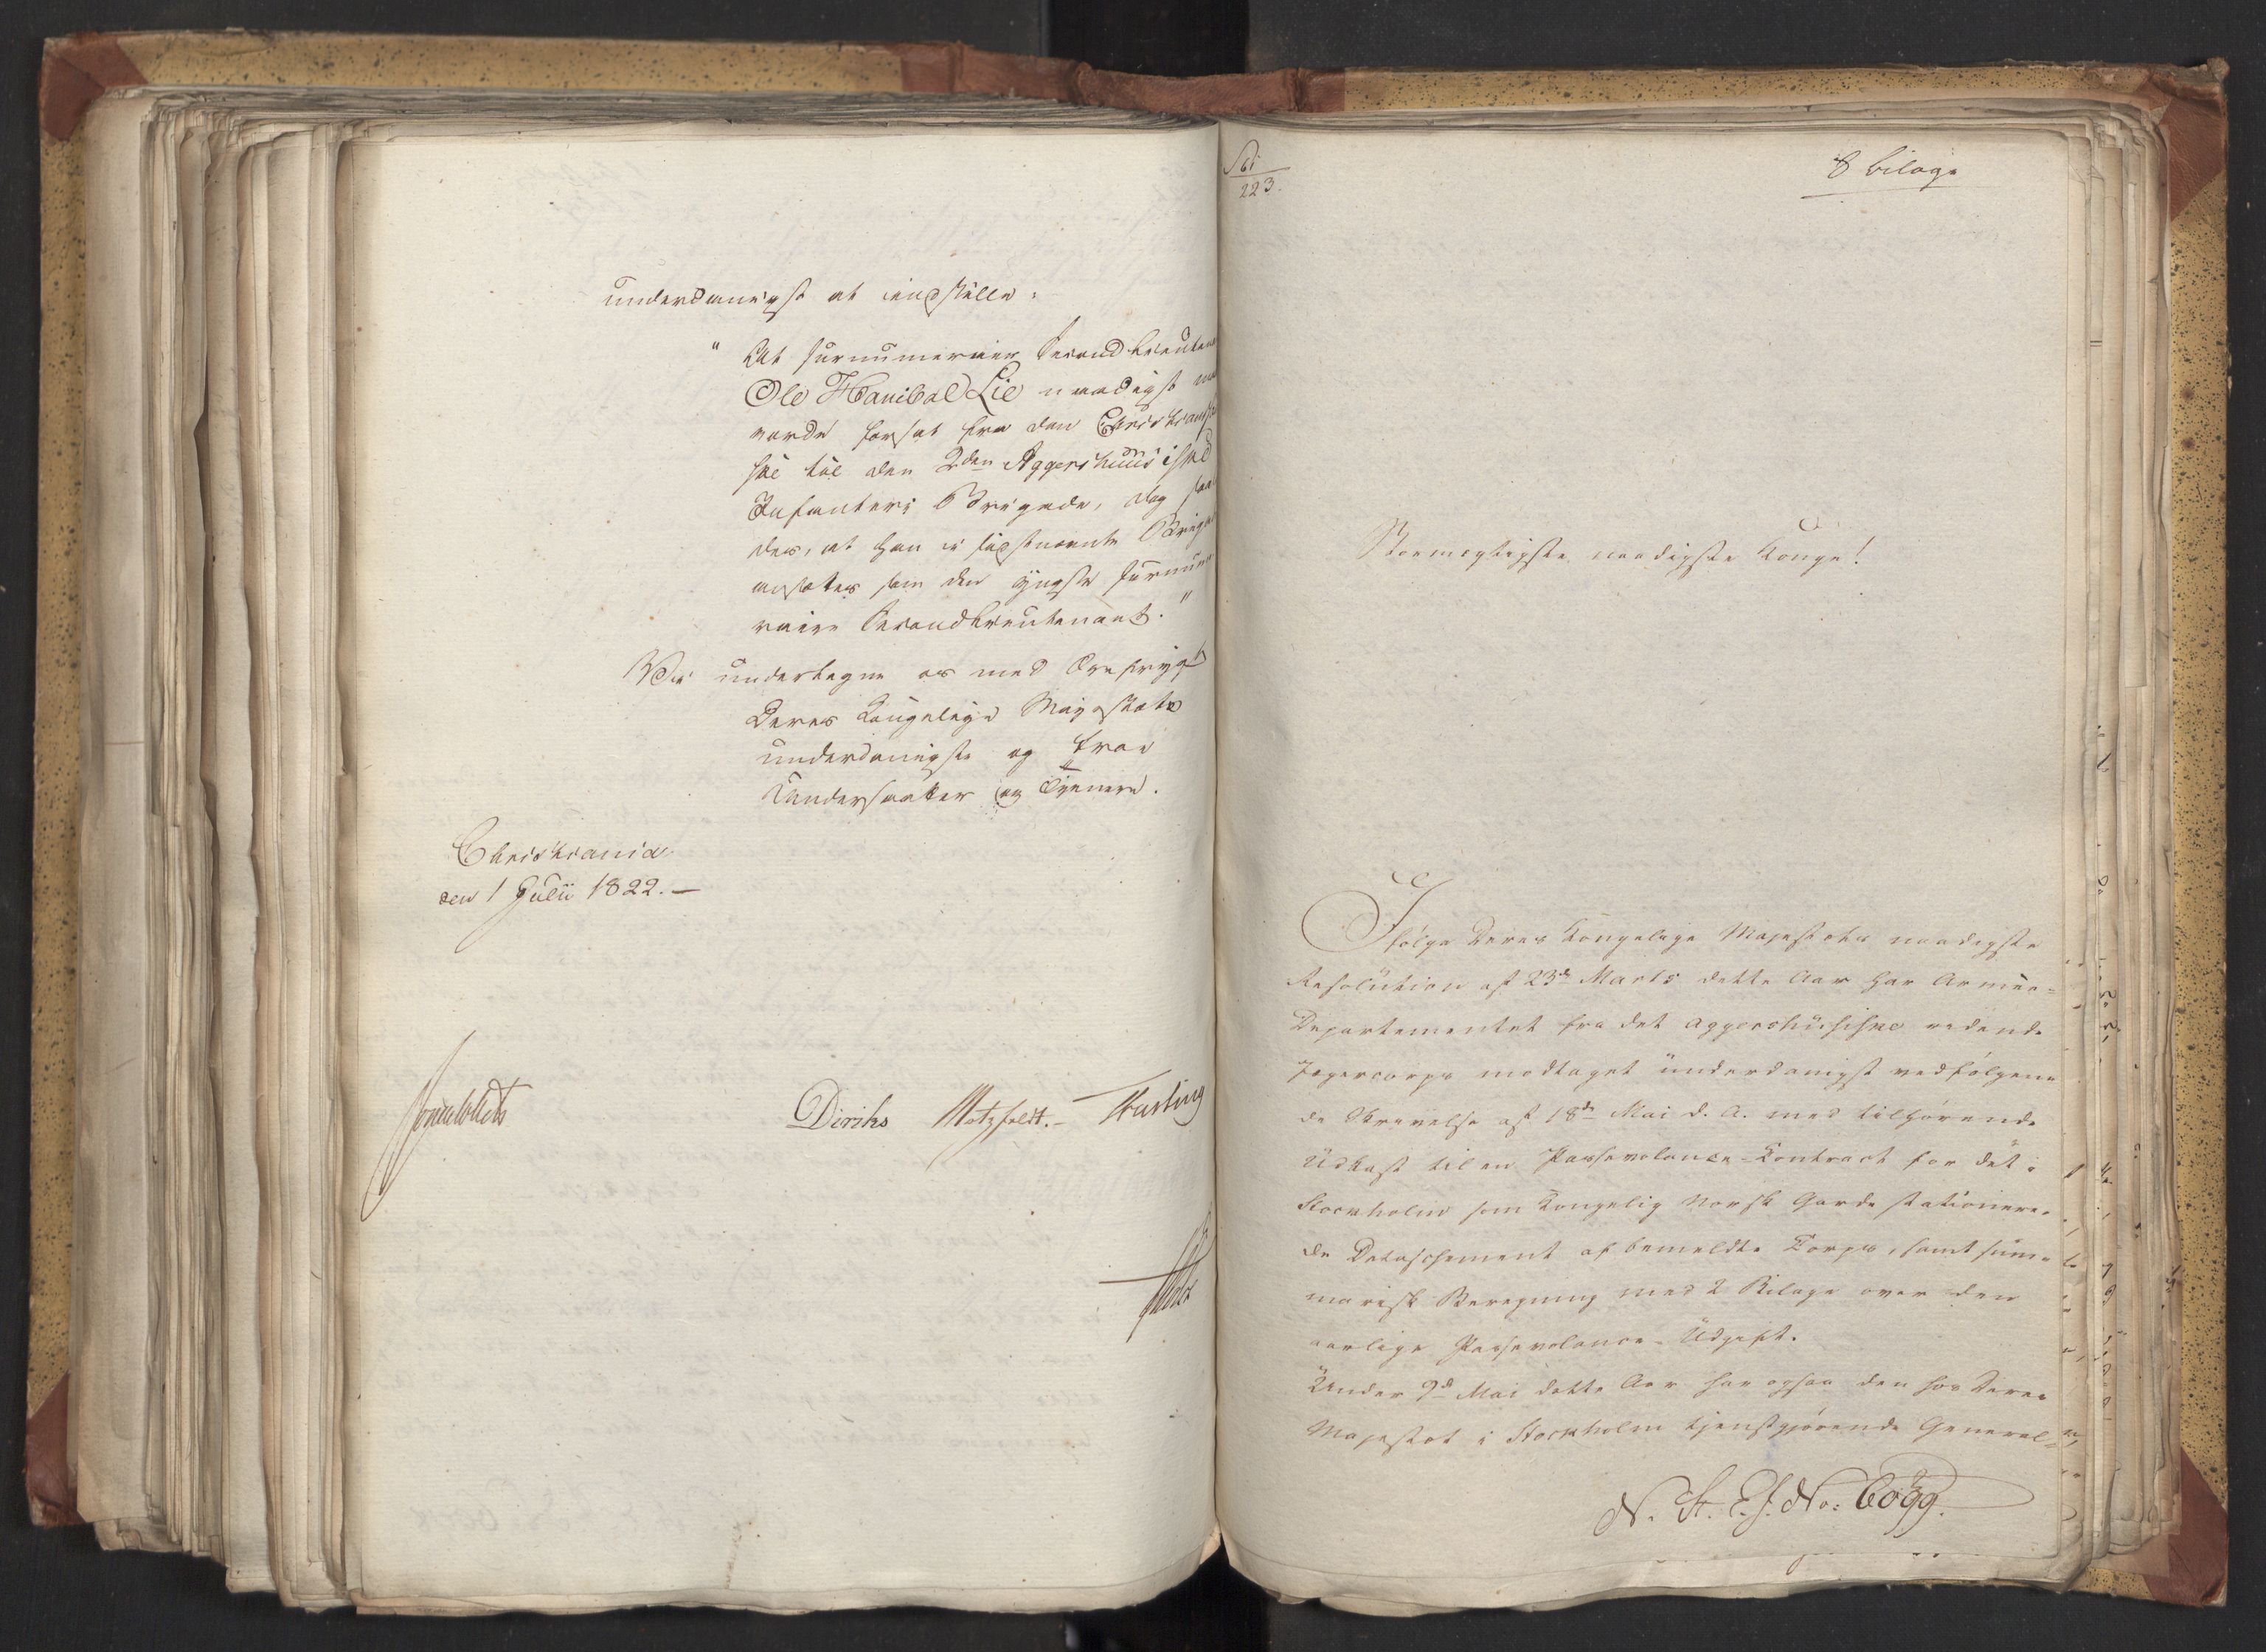 underdanigst at indstille:
"At surnumerair Secondlieutenant
Ole Hanibal Lie naadigst maa
vorde forsat fra den Christiansand-
ske til den 2den Aggershuusiske
Infanteri Brigade, dog saale-
des, at han i sidstnævnte Brigade
ansættes som den yngste surnume-
raire Secondlieutenant."
Vi undertegne os med Ærefrygt
Deres Kongelige Majestæts
underdanigste og troe
Undersaatter og Tjenere.
Christiania
den 1 Julii 1822.—
Sommerhielm
Diriks Motzfeldt.— Fasting
Holst
223.
8 bilage
Stormægtigste naadigste Konge!
Ifølge Deres Kongelige Majestæts naadigste
Resolution af 23d Marts dette Aar har Armee-
Departementet fra det Aggershusiske ridende
Jægercorps modtaget underdanigst vedføjen-
de Skrivelse af 18de Mai d. A. med tilhørende
Udkast til en Passevolance-Contract for det i
Stockholm som Kongelig Norsk Garde statione-
de Detaschement af bemeldte Corps, samt sum-
marisk Beregning med 2 Bilage over den
aarlige Passevolance-Udgift.
Under 9d Mai dette Aar har ogsaa den hos Deres
Majestæt i Stockholm tjenstgjørende General-
N. St. E. J. No: 6099.